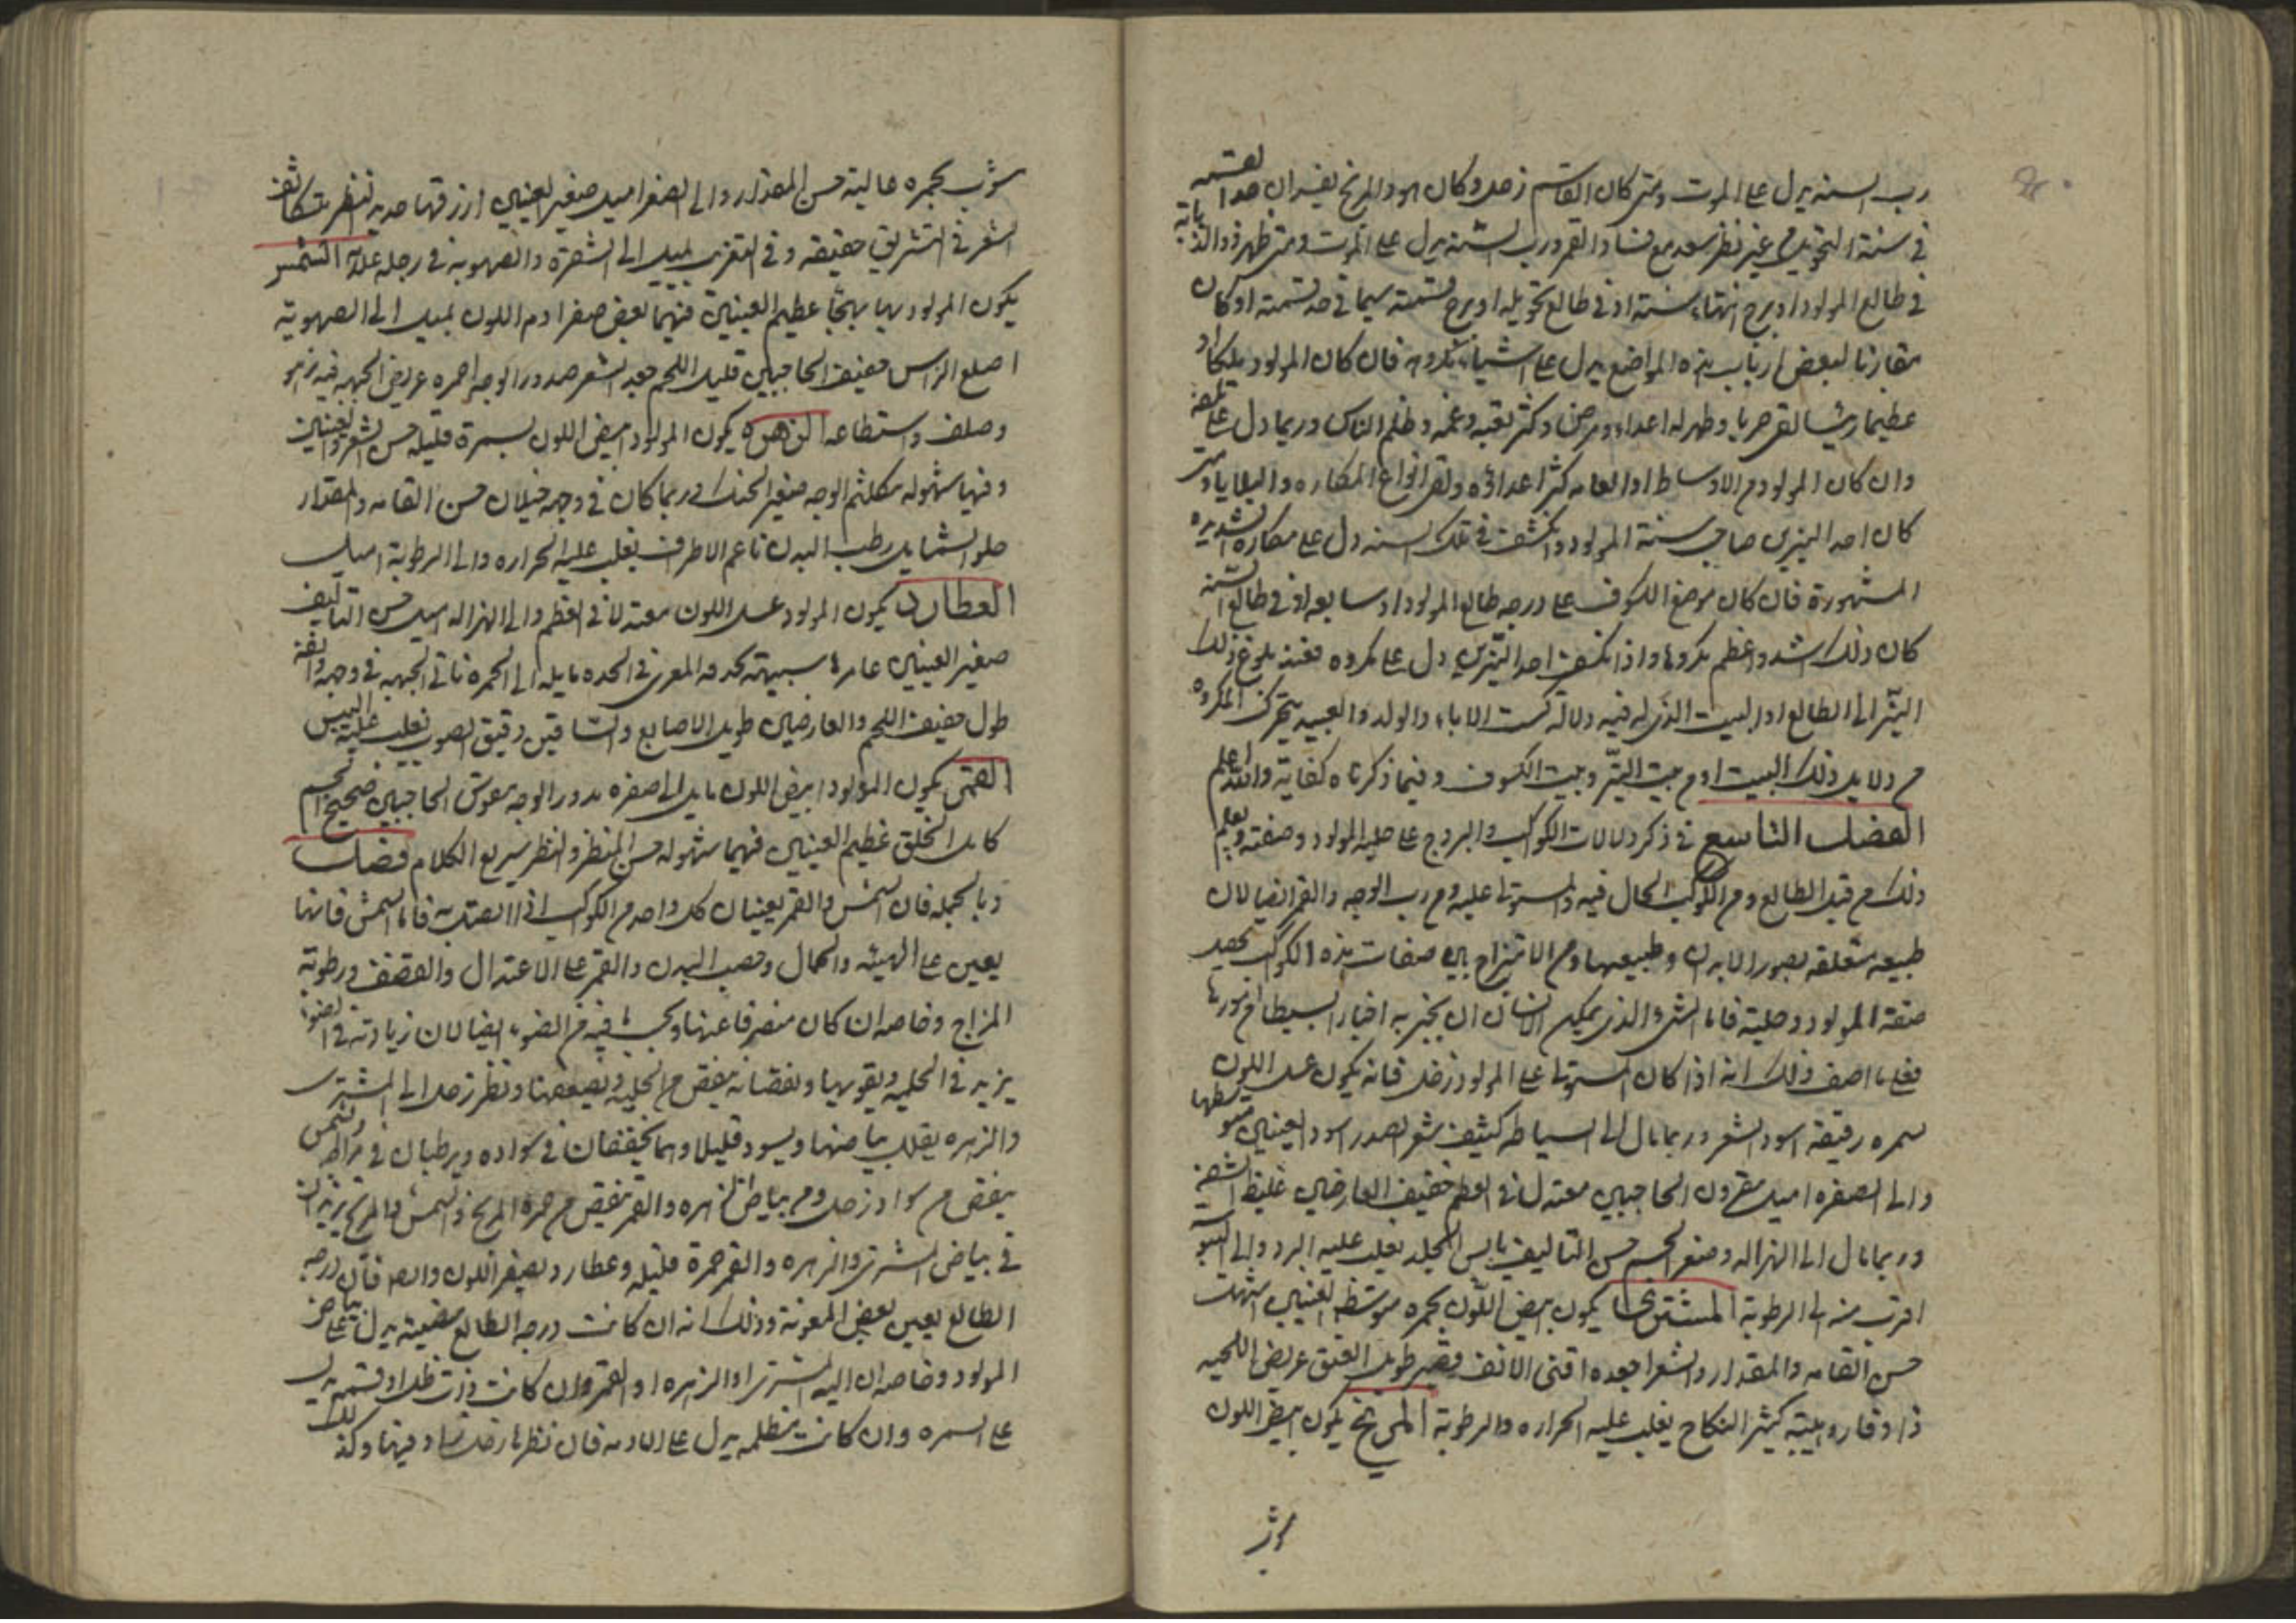 رب السنه يدل على الموت ومتى كان القاسم زحل وكان هو والمريخ يفسدان القسمه
في سنة التحويل من غير نظر سعد مع فساد القمر ورب السنة يدل على الموت ومتى ظهر ذو الذؤابة
في طالع المولود او برج انتهاء سنته او في طالع تحويله او برج قسمته سيما في حد قسمته او كان
مقارنا لبعض ارباب هذه المواضع يدل على اشياء مكروهه فان كان المولود ملكا او
عظيما رئيسا لقى حربا وظهر له اعداء ومرض وكثر تعبه وغمه وظلم الناس وربما دل على تلفه
وان كان المولود من الاوساط او العامه كثر اعداؤه ولقى انواع المكاره والبلايا ومتى
كان احد النيرين صاحب سنة المولود وانكسف في تلك السنه دل على مكاره الشديده
المشهورة فان كان موضع الكسوف على درجه طالع المولود او سابعه او في طالع السنة
كان ذلك اشد واعظم مكروها واذا انكسف احد النيرين دل على مكروه فعند بلوغ ذلك
النير الى الطالع او البيت الذي له فيه دلالة كبيت الاباء والولد والعبيد يتحرك المكروه
من دلايل ذلك البيت او من بيت النير وبيت الكسوف وفيما ذكرناه كفاية والله اعلم
الفصل التاسع في ذكر دلالات الكواكب والبروج على حليه المولود وصفته ويعلم
ذلك من قبل الطالع ومن الكوكب الحال فيه والمستولى عليه ومن رب الوجه والقمر ايضا لان
طبيعه متعلقه بصور الابدان وطبيعها ومن الامتزاج بين صفات هذه الكواكب يحصل
صفة المولود وحليته فاما الشيء الذي يمكن الانسان ان يخبر به اخبارا بسيطا من صورتها
فعلى ما اصف ذلك انه اذا كان المستولى على المولود زحل فانه يكون عسلى اللون
سمره رقيقه اسود الشعر وربما مال الى السباطه كثيف شعر الصدر اسود العينين متوسطها
والى الصفره اميل مقرون الحاجبين معتدل في العظم خفيف العارضين غليظ الشفه
وربما مال الى الهزاله وصغر الجسم حسن التاليف يابس الجلد يغلب عليه البرد والى
اقرب منه الى الرطوبة المشترى يكون ابيض اللون بحمره متوسط العينين
حسن القامه والمقدار والشعر اجعده اقنى الانف قصير طويل العنق عريض اللحيه
ذا وقار وهيبته كثير النكاح يغلب عليه الحراره والرطوبة المريخ يكون ابيض اللون
يشوب
يشوب بحمره عالية حسن المقدار والى الصغر اميل صغير العينين ازرقها حديد النظر متكاثف
الشعر في التشريق حقيقه وفي التغريب يميل الى الشقرة والصهوبه في رجله علامة الشمس
يكون المولود بهيا بهجا عظيم العينين فيهما بعض صفر ادم اللون يميل الى الصهوبة
اصلع الراس خفيف الحاجبين قليل اللحم جعد الشعر مدور الوجه احمره عريض الجبهه فيه زهو
وصلف واستطاعه الزهره يكون المولود ابيض اللون بسمرة قليله حسن الشعر والعينين
وفيها شهوله مكلثم الوجه صغير الحنك وربما كان في وجهه خيلان حسن القامه والمقدار
حلو الشمايل رطب البدن ناعم الاطراف يغلب عليه الحراره والى الرطوبة اميل
العطارد يكون المولود عسلى اللون معتدلا في العظم والى الهزاله اميل حسن التاليف
صغير العينين غايرها شبيهة بحدقه المعزى في الحده مايله الى الحمره ناتى الجبهه في وجهه وانفه
طول خفيف اللحم والعارضين طويل الاصابع والساقين دقيق الصوت يغلب عليه اليبس
القمر يكون المولود ابيض اللون مايل الى صفره مدور الوجه مقوس الحاجبين صحيح الجسم
كامل الخلق عظيم العينين فيهما شهوله حسن المنظر والنظر سريع الكلام فصل
وبالجمله فان الشمس والقمر يعينان كل واحد من الكواكب اذا اتصلت به فاما الشمس فانها
يعين على الهيئه والجمال وخصب البدن والقمر على الاعتدال والقضف ورطوبة
المزاج وخاصه ان كان منصرفا عنها وبحسب ما فيه من الضوء ايضا لان زيادته في الضوء
يزيد في الحليه ويقويها ونقصانه ينقص من الحليه ويضعفها ونظر زحل الى المشترى
والزهره يقلل بياضها ويسود قليلا وهما يخففان في سواده ويرطبان في مزاجه والشمس
ينقص من سواد زحل ومن بياض الزهره والقمر ينقص من حمرة المريخ والشمس والمريخ يزيدان
في بياض المشترى والزهره والقمر حمرة قليله وعطارد يصفر اللون وايضا فان درجه
الطالع يعين بعض المعونة وذلك انه ان كانت درجه الطالع مضيئه يدل على بياض
المولود وخاصه ان اليه المشترى او الزهره او القمر وان كانت ذات ظل او قتمه يدل
على السمره وان كانت مظلمه يدل على الادمه فان نظرها زحل زاد فيها وكذلك